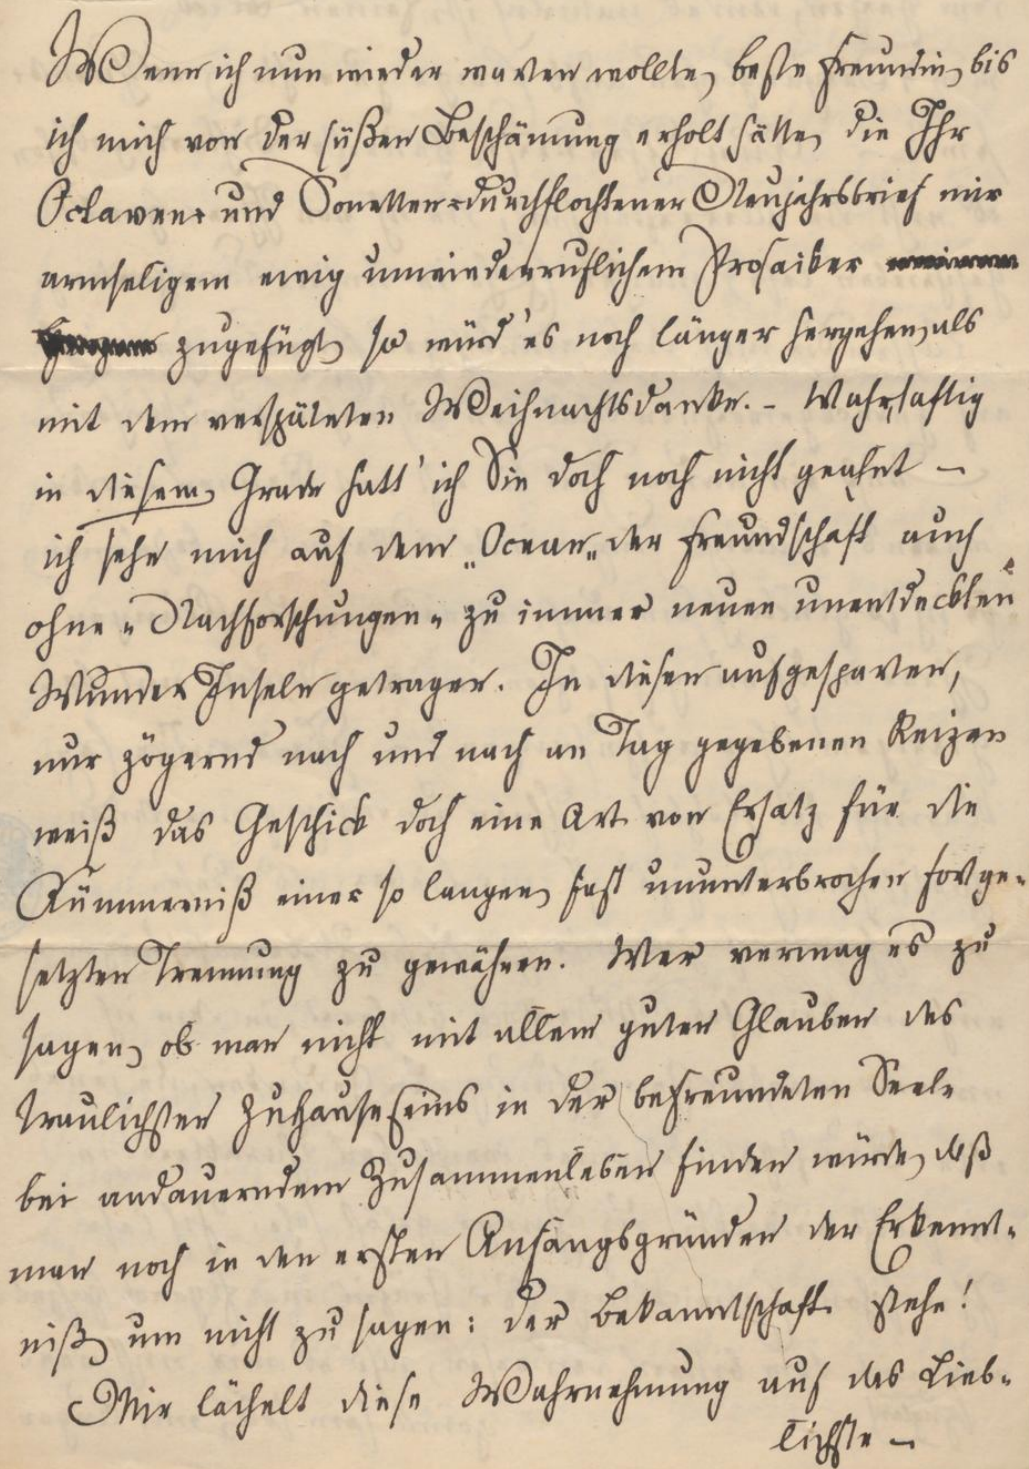 Wenn ich nun wieder warten wollte, beste Freundin, bis
ich mich von der süßen Beschämung erholt hätte, die Ihr
Octaven- und Sonetten-durchflochtener Neujahrsbrief mir
armseligem ewig unwiederruflichem Prosaiker
zugefügt, so würd' es noch länger hergehen, als
mit dem verspäteten Weihnachtsdanke. - Wahrhaftig
in diesem Grade hatt' ich Sie doch noch nicht geahnt -
ich sehe mich auf dem „Ocean„ der Freundschaft auch
ohne „Nachforschungen„ zu immer neuen unentdeckten
Wunder Inseln getragen. In diesen aufgesparten,
nur zögernd nach und nach an Tag gegebenen Reizen
weiß das Geschick doch eine Art von Ersatz für die
Kümmerniß einer so langen, fast ununterbrochen fortge-
setzten Trennung zu gewähren. Wer vermag es zu
sagen, ob man nicht mit allem guten Glauben des
traulichsten Zuhauseseins in der befreundeten Seele
bei andauerndem Zusammenleben finden würde, daß
man noch in den ersten Anfangsgründen der Erkennt-
niß, um nicht zu sagen: der Bekanntschaft stehe!
Mir lächelt diese Wahrnehmung auf das Lieb-
lichste -